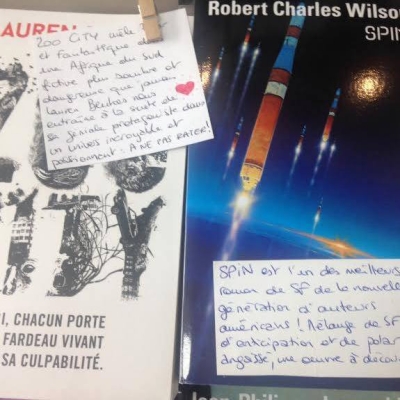 LAUREN
ZOO CITY mêle SF
et Fantastique dans
une Afrique du Sud
fictive plus sombre et
dangereuse que jamais.
Lauren Beukes nous
entraîne à la suite de
sa géniale protagoniste dans
un univers incroyable et
passionnant: A NE PAS RATER!
ZOO
CITY
CHACUN PORTE
FARDEAU VIVANT
SA CULPABILITÉ.
Robert Charles Wilson
SPIN
SPIN est l'un des meilleurs
roman de SF de la nouvelle
génération d'auteurs
américains! Mélange de SF
d'anticipation et de polar
angoissé, une œuvre à découv